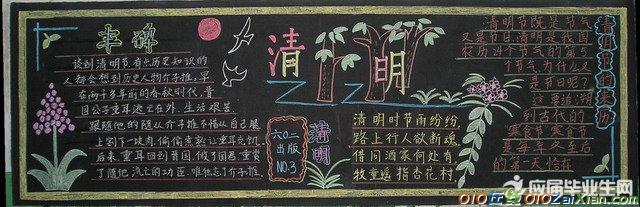 丰碑
谈到清明节有点历史知识的
人都会想到历史人物介子推,早
在两千多年前的春秋时代,晋
国公子重耳逃亡在外,生活艰苦
跟随他的随从介子推不惜从自己腿
上割下一块肉,偷偷煮熟让重耳充饥
后来,重耳回到晋国,做了国君,重赏
了随他流亡的功臣,唯独忘了介子推
清明
六〇二
出版
NO.3
清明
清明时节雨纷纷,
路上行人欲断魂,
借问酒家何处有
牧童遥指杏花村
清明节的来历
清明节既是节气
又是节日清明是我国
农历24个节气的第5
个节气为什么又
是节日呢?
这要追溯
到古代的
寒食节寒食节
是每年冬至后
的第一天恰在
应届毕业生网
010在线
010ZaiXian.com